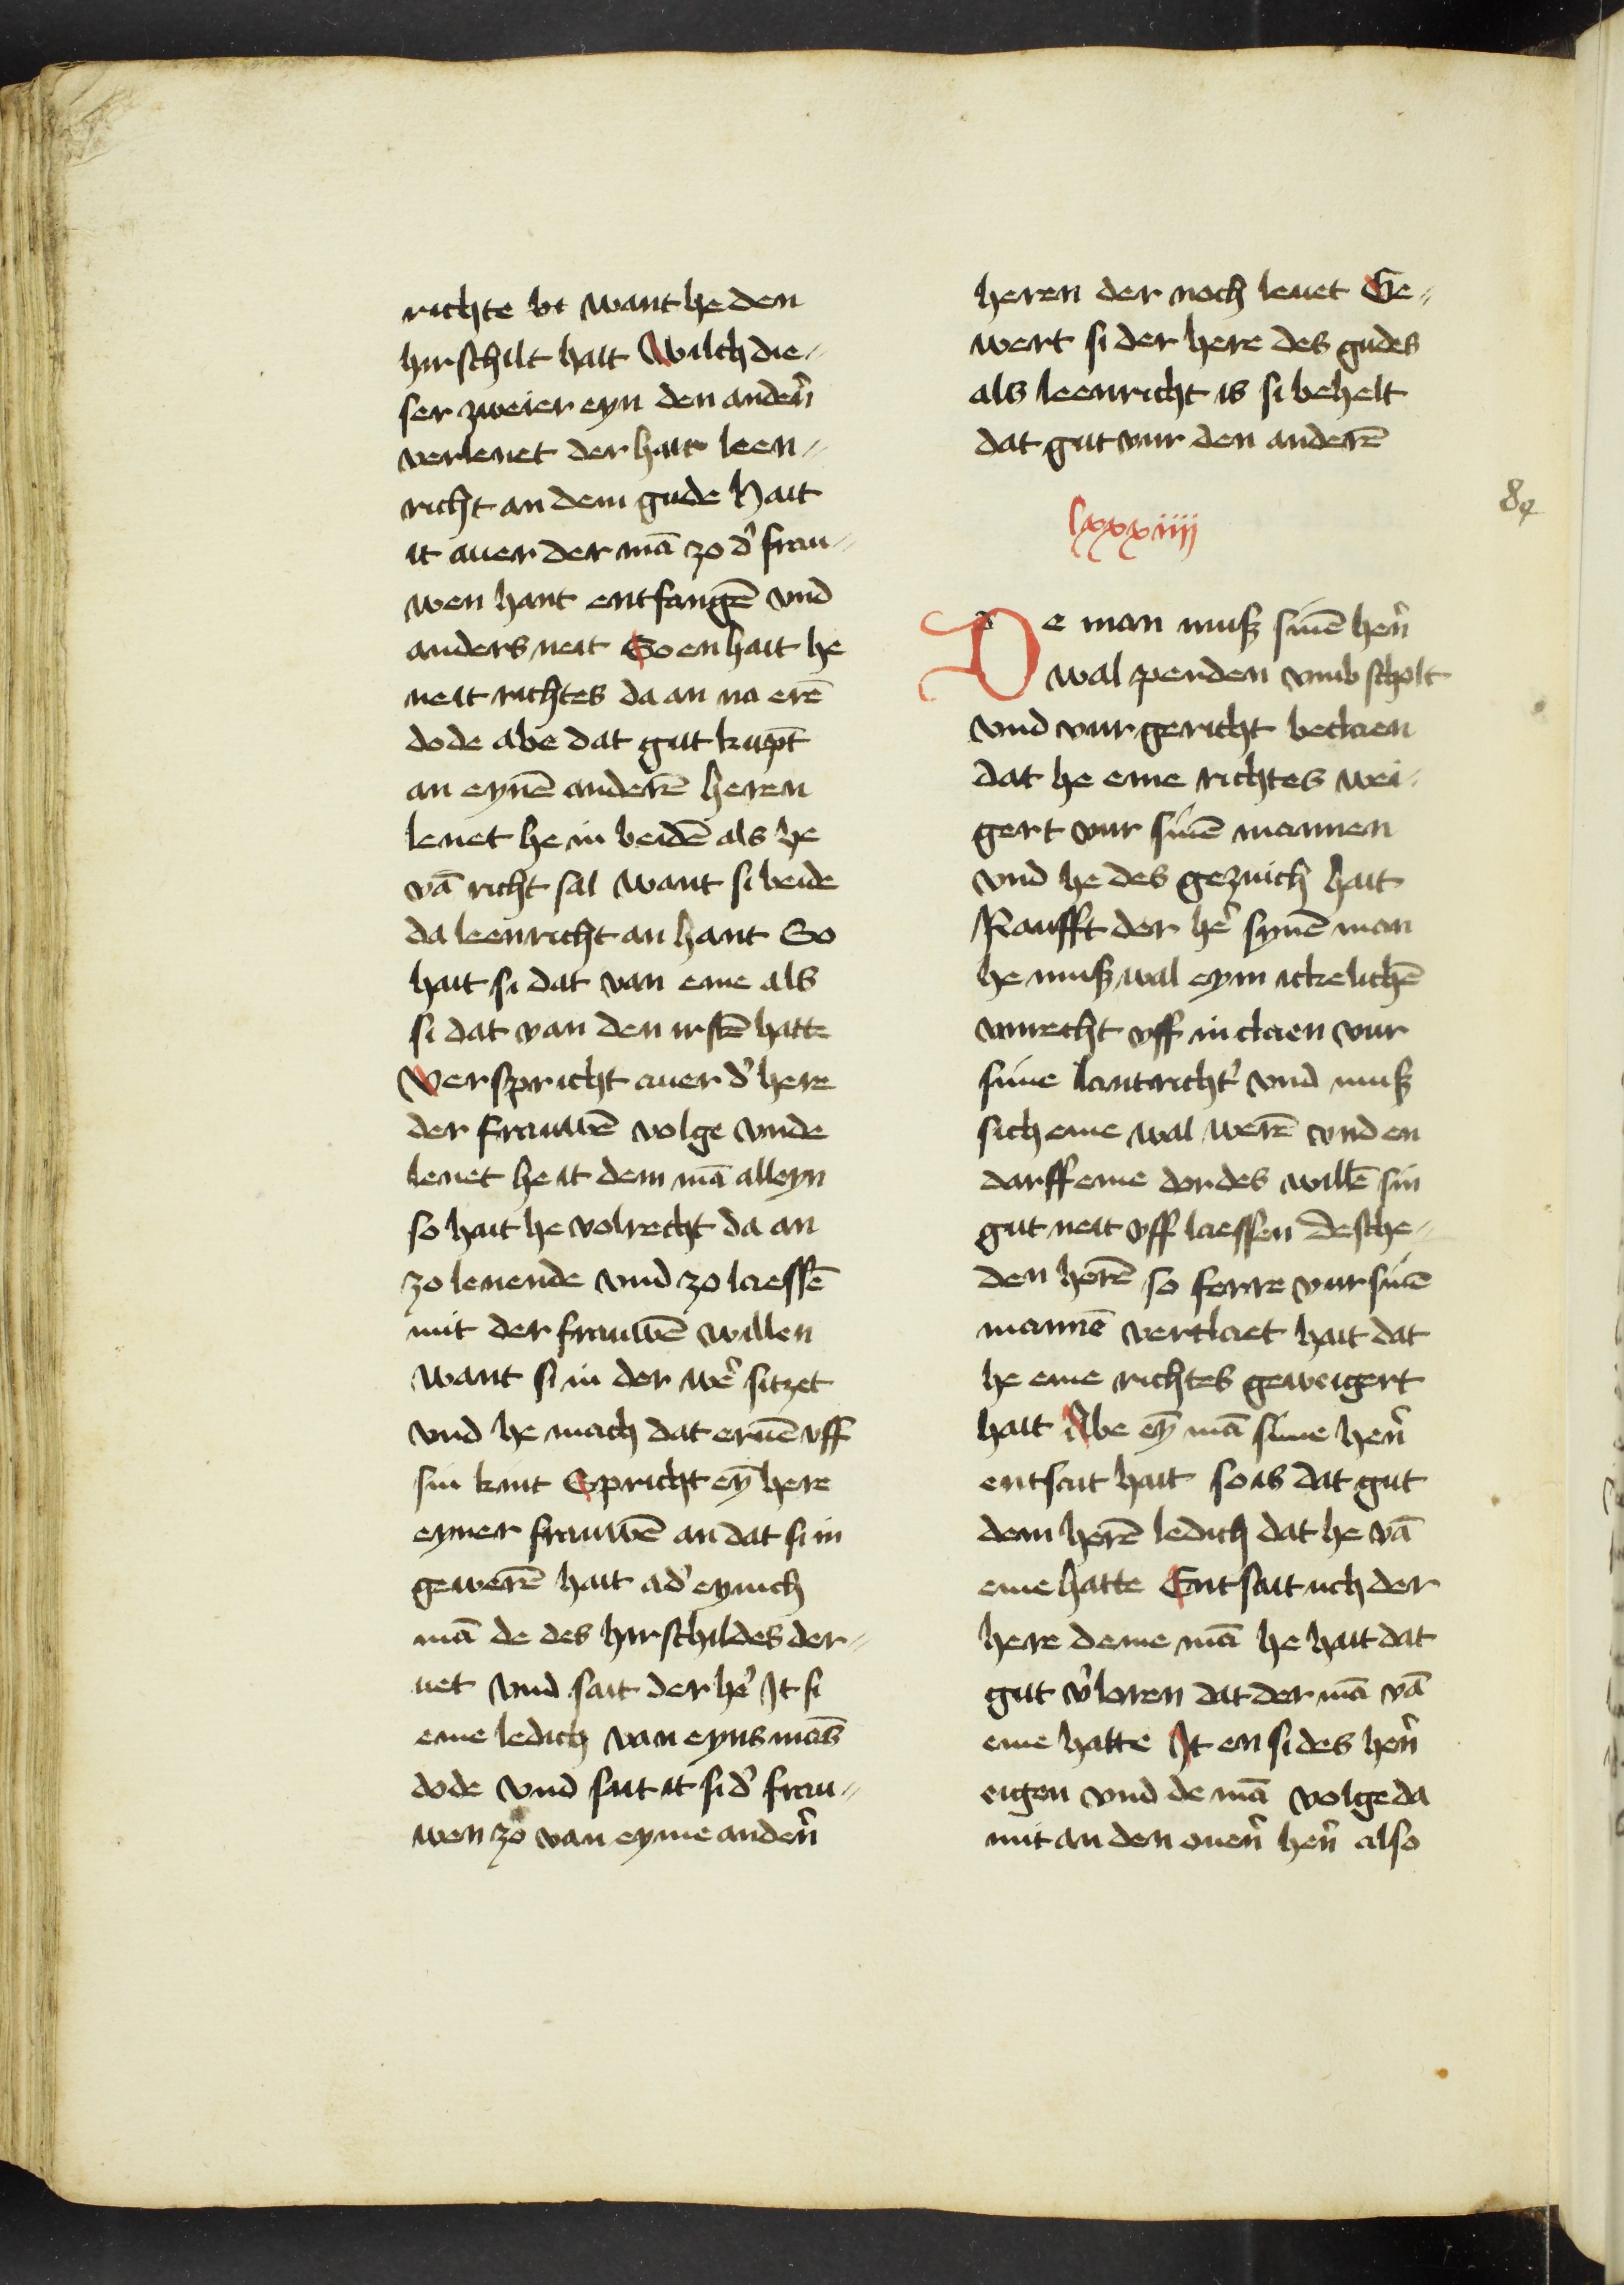 richte bi want he den
hirschilt hait Wilch die⸗
ser zweier eyn den anderñ
verlenet der hait leen⸗
richt an dem gude Hait
it auer der mā zo d' frau⸗
wen hant entfangē vnd
anders neit So en hait he
neit richtes da an na erē
dode abe dat gut kūpt
an eynē anderē heren
lenet he in beidē als he
vā richt sal want si beide
da leenricht an hant So
hait si dat van eme als
si dat van den irstē hatte
Verspricht auer d' here
der frauwē volge vnde
lenet he it dem mā alleyn
so hait he volrecht da an
zo lenende vnd zo laessē
mit der frauwē willen
want si in der wer' sitzet
vnd he mach dat eruē vff
sin kint Spricht eȳ here
eyner frauwē an dat si in
gewerē hait ad' eynich
mā de des hirschildes der⸗
uet vnd sait der he' It si
eme ledich van eyns mās
dode vnd sait it si d' frau⸗
wen zo van eyme anderñ
heren der noch leuet Ge⸗
wert si der here des gudes
als leenricht is si behelt
dat gut vur den anderē
lxxxiiij
84
De man muß sinē herñ
wal penden vmb scholt
vnd vur gericht beclaen
dat he eme richtes wei⸗
gert vur sinē mannen
vnd he des gezuich hait
Raufft der he' synē man
he muß wal eym ickelichē
vnrecht vff in claen vur
sime lantricht' vnd muß
sich eme wal werē vnd en
darff eme dor des willē sin
gut neit vff laessen desche⸗
den herē so ferre vur sinē
mannē verclaet hait dat
he eme richtes geweigert
hait Abe eȳ mā sime herñ
entsait hait so is dat gut
dem herē ledich dat he vā
eme hatte Entsait uch der
here deme mā he hait dat
gut v'loren dat der mā vā
eme hatte It en si des herñ
eigen vnd de mā volge da
mit an den ouerñ herñ also